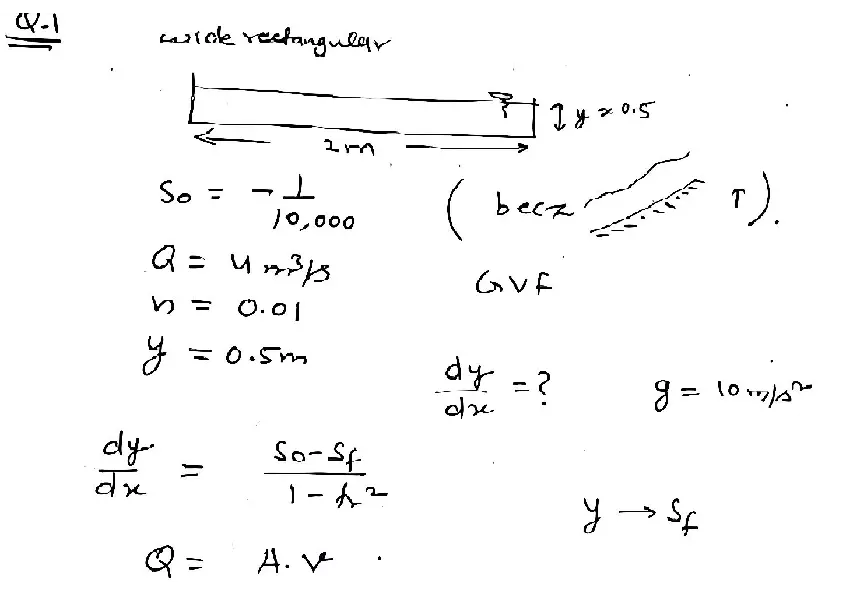 Q-1
wide rectangular
y ≈ 0.5
2m
S₀ = -1/10,000 ( becz ↑ ).
Q = 4 m³/s
GVF
n = 0.01
y = 0.5m
dy/dx = ? g = 10 m/s²
dy/dx = S₀-Sf / 1-fr²
y → Sf
Q = A.V .